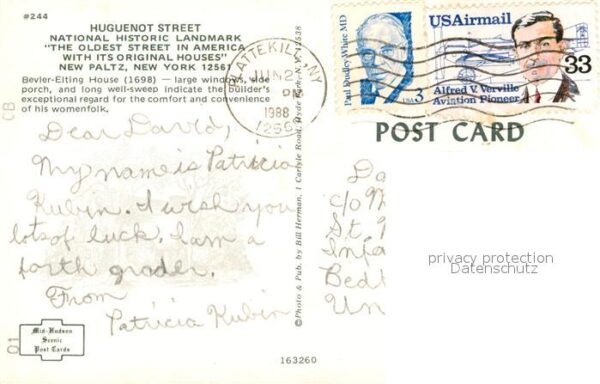 #244
HUGUENOT STREET
NATIONAL HISTORIC LANDMARK
"THE OLDEST STREET IN AMERICA
WITH ITS ORIGINAL HOUSES"
NEW PALTZ, NEW YORK 12561
Bevier-Elting House (1698) — large windows, side
porch, and long well-sweep indicate the builder's
exceptional regard for the comfort and convenience
of his womenfolk.
CB
Dear David,
My name is Patricia
Kubin. I wish you
lots of luck. I am a
forth grader.
From
Patricia Kubin
Mid-Hudson
Scenic
Post Cards
01
163260
©Photo & Pub. by Bill Herman, 1 Carlyle Road, Hyde Park, N.Y. 12538
PLATTEKILL, NY
JUN 2
PM
1988
Paul Dudley White MD
USA 3
USAirmail
33
Alfred V. Verville
Aviation Pioneer
POST CARD
Da
c/o
St.
Infa
Bedt
Un
privacy protection
Datenschutz